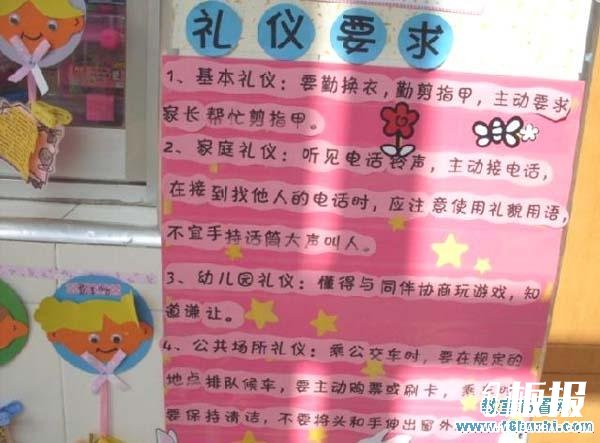 礼仪要求
1、基本礼仪：要勤换衣，勤剪指甲，主动要求
家长帮忙剪指甲。
2、家庭礼仪：听见电话铃声，主动接电话，
在接到找他人的电话时，应注意使用礼貌用语，
不宜手持话筒大声叫人。
3、幼儿园礼仪：懂得与同伴协商玩游戏，知
道谦让。
4、公共场所礼仪：乘公交车时，要在规定的
地点排队候车，要主动购票或刷卡，乘
要保持清洁，不要将头和手伸出窗外
板报
www.16buzhi.com